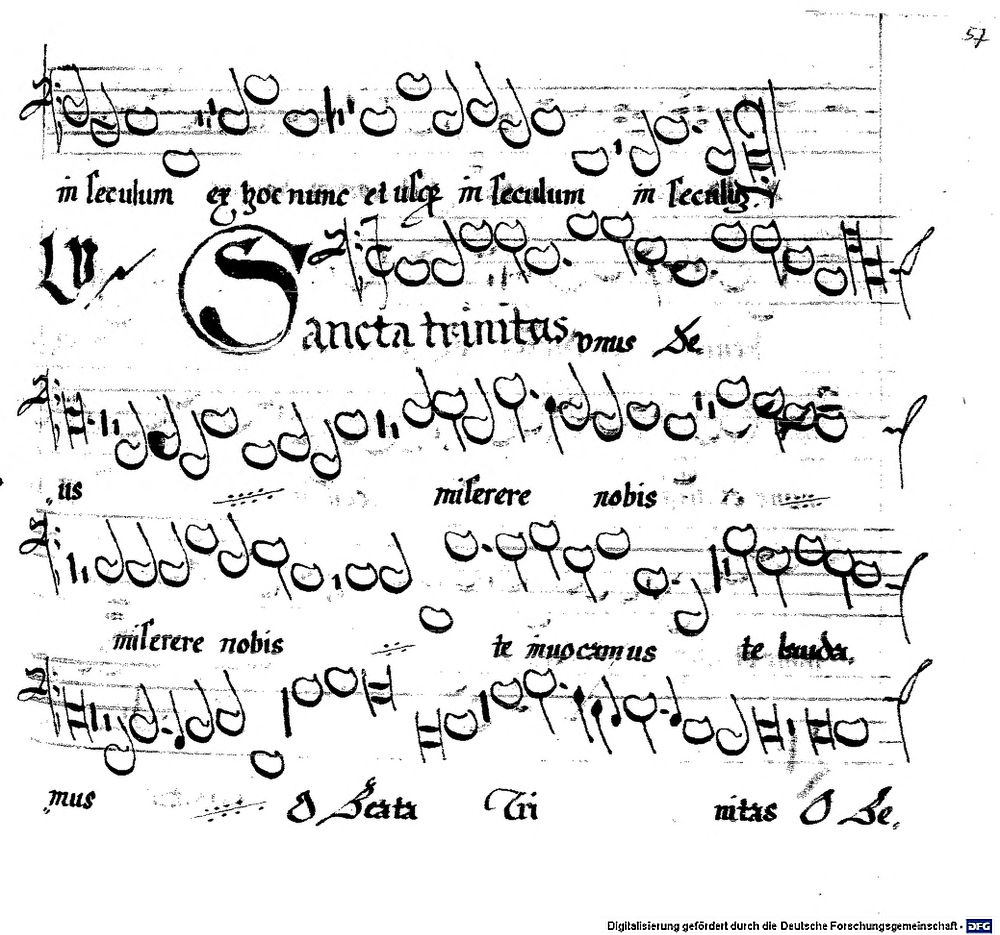 57
in seculum ex hoc nunc et usq in seculum in seculu
LV
Sancta trinitas vnus De
us miserere nobis
miserere nobis te inuocamus te lauda
mus O Beata Tri nitas O Be
Digitalisierung gefördert durch die Deutsche Forschungsgemeinschaft - DFG